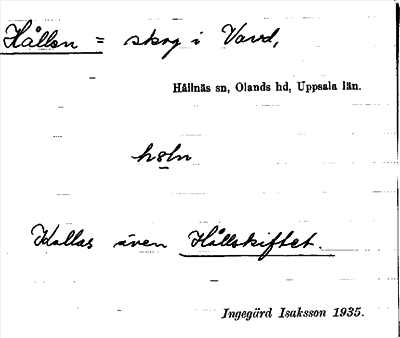 Hållen = skog i Vavd,
Hållnäs sn, Olands hd, Uppsala län.
Kallas även Hållskiftet.
Ingegärd Isaksson 1935.